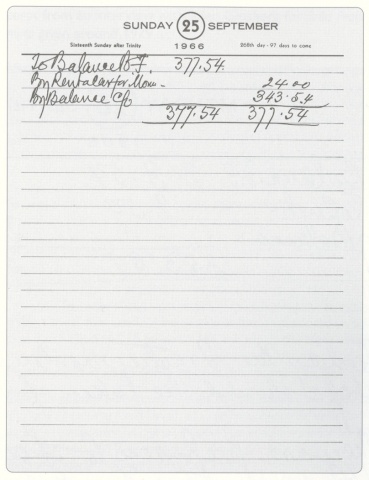 SUNDAY 25 SEPTEMBER
Sixteenth Sunday after Trinity 1966 268th day - 97 days to come
To Balance B.F. 377.54
By Rentalcar for Mom - 24-00
By Balance C/o 343.54
377.54 377.54